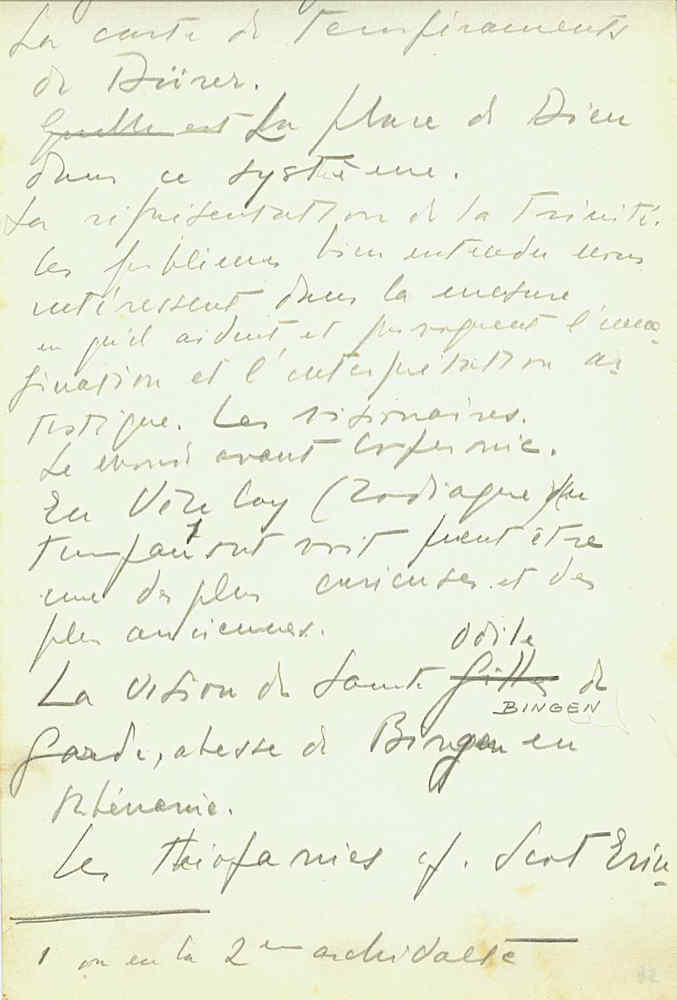 La carte de temperaments
de Dürer.
Quelle est La place de Dieu
dans ce système.
La représentation de la Trinité.
les problemes bien entendu nous
intéressent dans la mesure
en qu'il aident et provoquent l'ima-
gination et l'interprétation ar-
tistique. Les visionaires.
Le monde avant Copernic.
En Vézelay (Zodiaque) du
tympan 1 ont voit peut être
une des plus curieuses et des
plus anciennes.
Odile
La vision de Sainte Gilles de
BINGEN
Garde, abesse de Bingen en
Rhénanie.
Les théofanies cf. Scot Eriu-
1 ou en la 2em archivolte